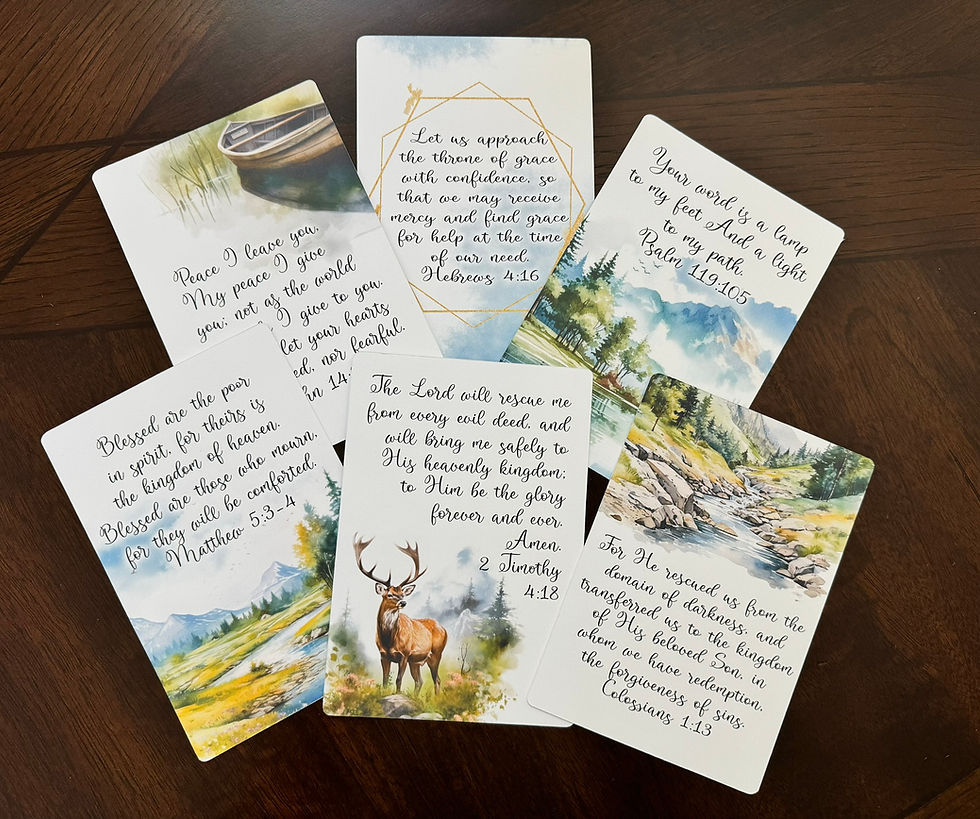 Let us approach
the throne of grace
with confidence, so
that we may receive
mercy and find grace
for help at the time
of our need.
Hebrews 4:16
Peace I leave you,
My peace I give
you; not as the world
I give to you.
let your hearts
nor fearful.
14:
Your word is a lamp
to my feet And a light
to my path.
Psalm 119:105
Blessed are the poor
in spirit, for theirs is
the kingdom of heaven.
Blessed are those who mourn,
for they will be comforted.
Matthew 5:3-4
The Lord will rescue me
from every evil deed, and
will bring me safely to
His heavenly kingdom;
to Him be the glory
forever and ever.
Amen.
2 Timothy
4:18
For He rescued us from the
domain of darkness, and
transferred us to the kingdom
of His beloved Son, in
whom we have redemption,
the forgiveness of sins.
Colossians 1:13